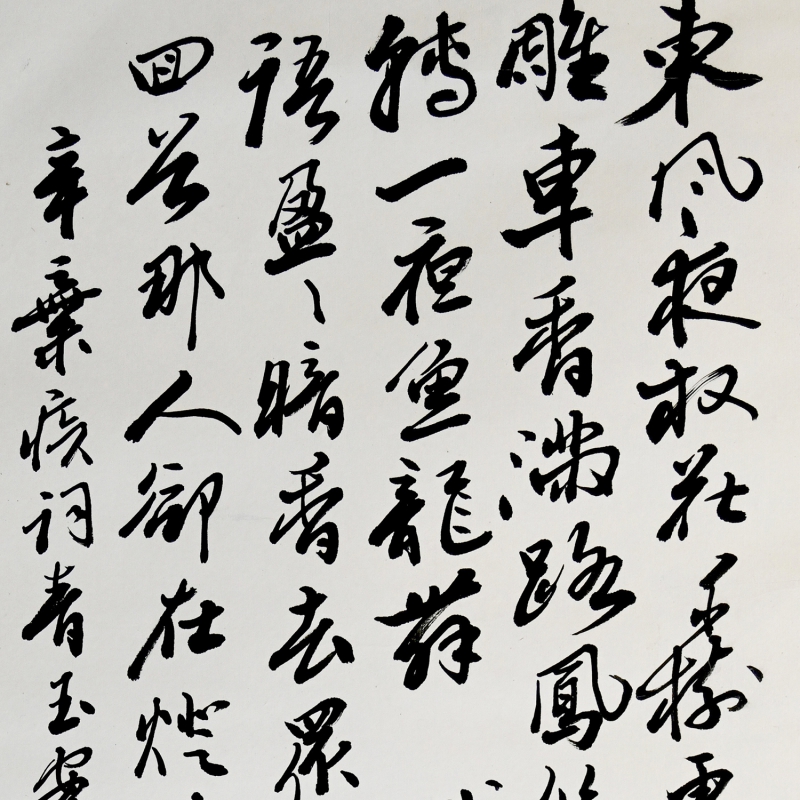 東風夜放花千樹
雕車香滿路鳳
轉一夜魚龍舞
語盈々暗香去眾
回首那人卻在燈
辛棄疾詞青玉案